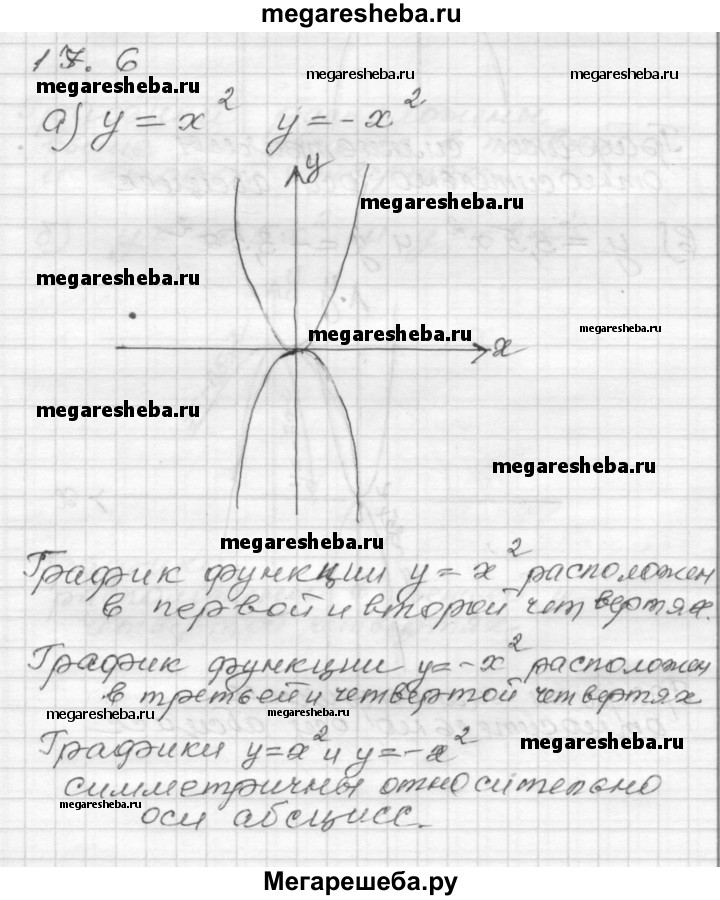 megaresheba.ru
17.6
megaresheba.ru
megaresheba.ru
megaresheba.ru
а) y = x² y = -x²
y
megaresheba.ru
megaresheba.ru
megaresheba.ru
megaresheba.ru
x
megaresheba.ru
megaresheba.ru
megaresheba.ru
График функции y = x² расположен
в первой и второй четвертях.
График функции y = -x² расположен
в третьей и четвертой четвертях
megaresheba.ru
megaresheba.ru
Графики y = x² и y = -x²
megaresheba.ru
симметричны относительно
megaresheba.ru
оси абсцисс.
Мегарешеба.ру